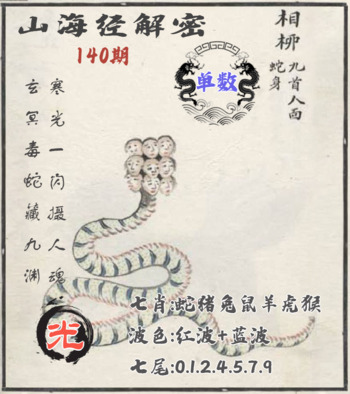 山海经解密
140期
相柳
九首人面
蛇身
单数
寒光一闪摄人魂
玄冥毒蛇藏九渊
七肖:蛇猪兔鼠羊虎猴
波色:红波+蓝波
七尾:0.1.2.4.5.7.9